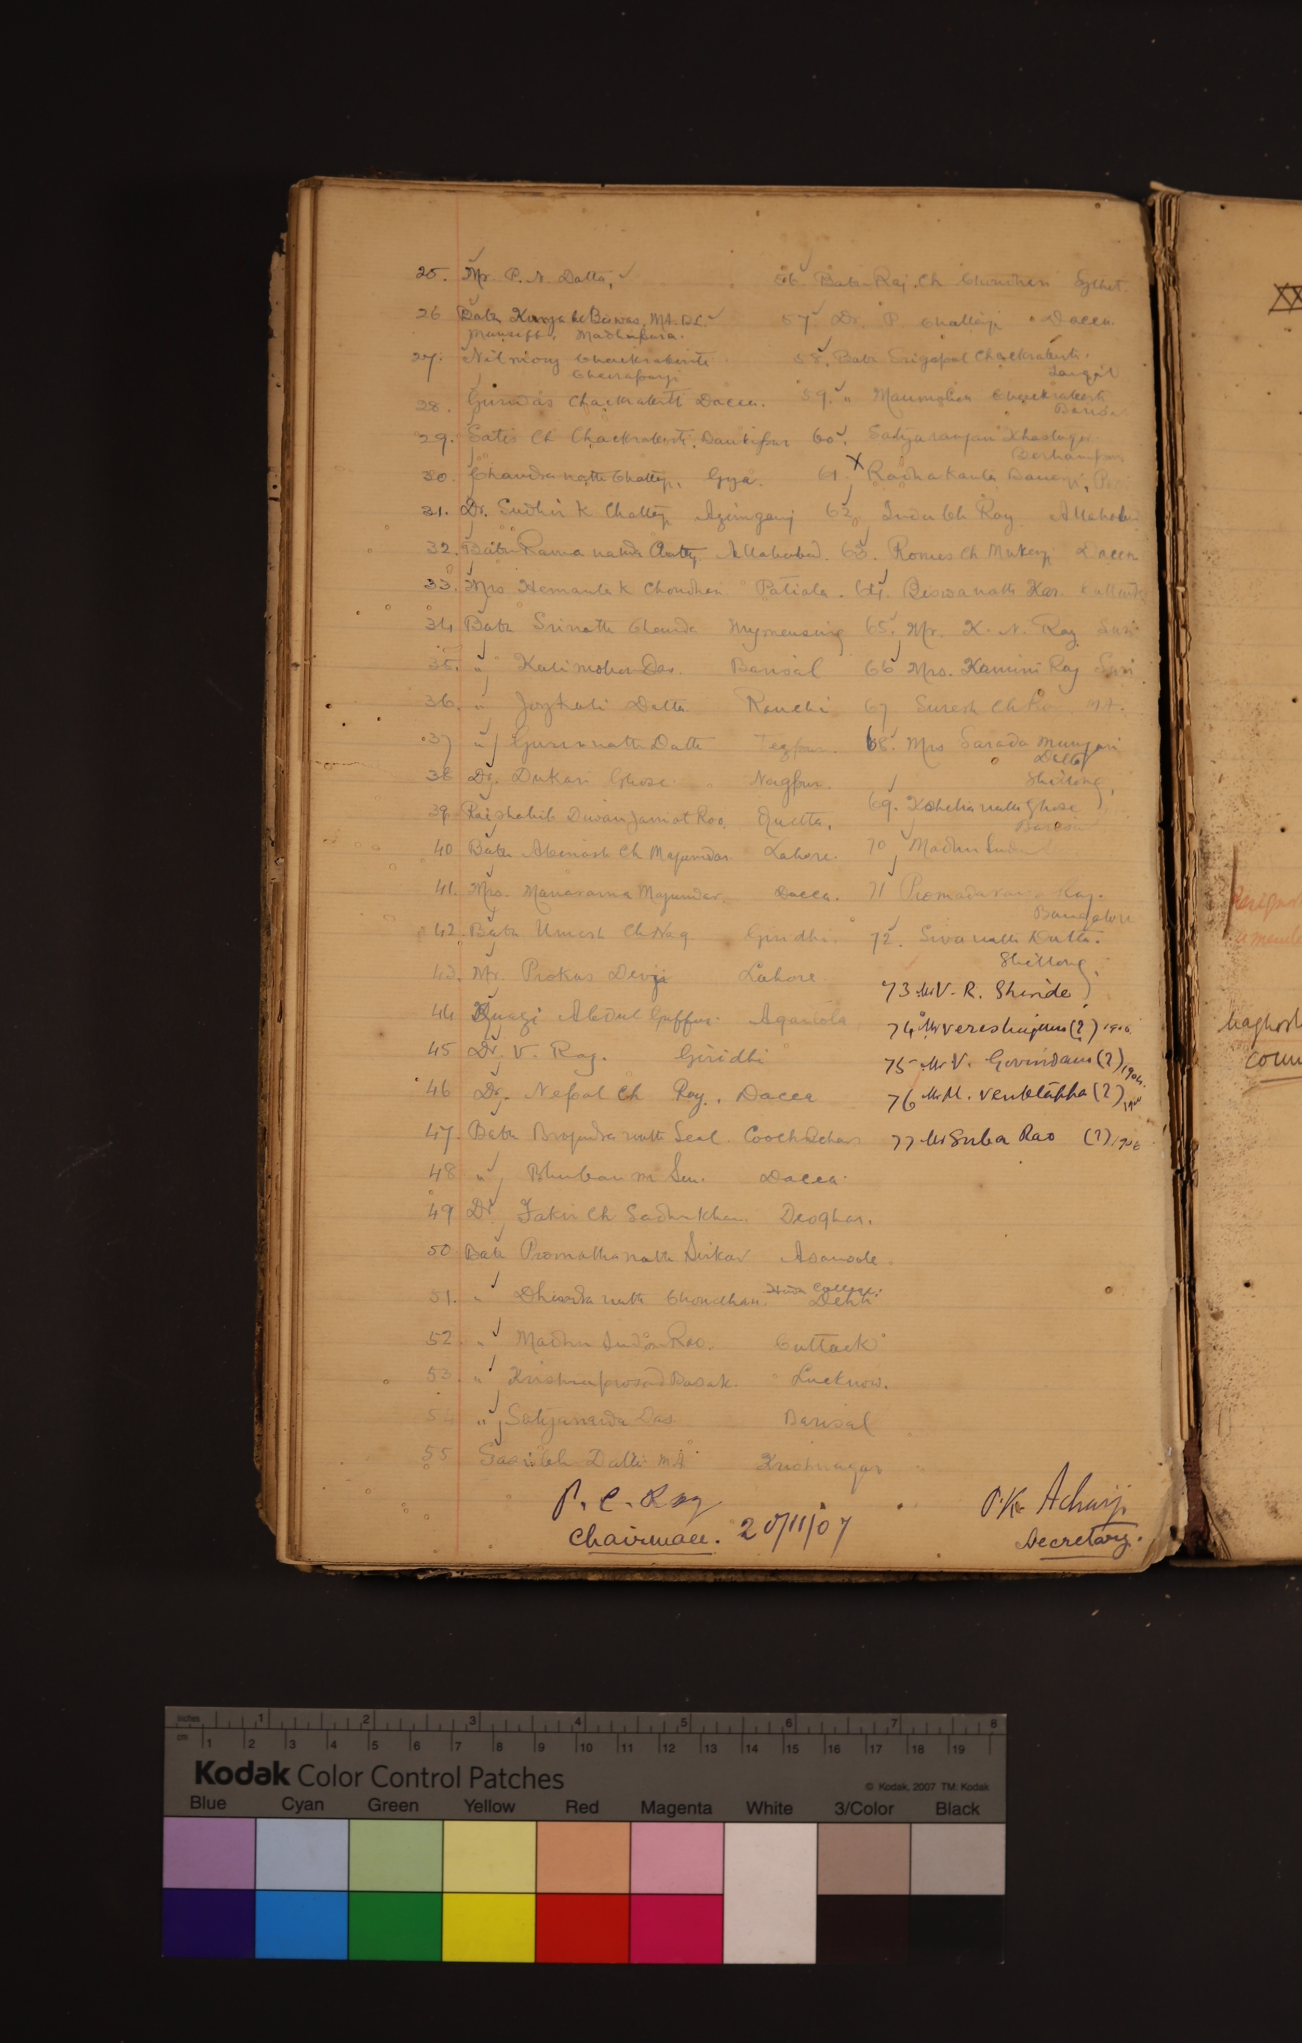 25. Mr. P. N. Datta,
26 Babu Kunja Biswas, MA. BL.
Munsiff. Madhipura.
27. Nilmony Chuckraborti
Cherapunji
28. Gurudas Chackraberti Dacca.
29. Satis Ch Chackraberti Bankipur
30. Chandra nath Chatterji, Gya.
31. Dr. Sudhir K Chatterji Azimganj
32. Babu Ramananda Chatterji Allahabad.
33. Mrs Hemanta K Choudhuri Patiala.
34 Babu Srinath Chanda Mymensing
35. " Kalimohan Das. Barisal
36. " Joykali Datta Ranchi
37 " Gurunath Datta Tezpur.
38 Dr. Dukari Ghose. Nagpur.
39. Rai Shahib Diwan Jamiat Rao, Quetta.
40 Babu Abinash Ch Majumdar Lahore.
41. Mrs. Manorama Majumdar. Dacca.
42. Babu Umesh Ch Nag Giridhi.
43. Mr. Prokas Devji Lahore.
44 Kuazi Abdul Gaffur.
45 Dr. V. Ray. Giridhi
46 Dr. Nepal Ch Ray. Dacca
47. Babu Brojendra nath Seal Cooch Behar
48 " Bhuban M Sen. Dacca.
49 Dr. Fakir Ch Sadhu Khan, Deoghar.
50 Babu Promatha nath Sirkar Asansole
51. " Dhirendra nath Choudhuri. Hindu College, Delhi
52. " Madhu Sudan Rao. Cuttack
53. " Krishna prosad Basak. Lucknow.
54 " Satyananda Das. Barisal
55 Sasi Ch Datta MA Krishnagar
56. Babu Raj. Ch Chaudhuri Sylhet.
57 Dr. P Chatterji Dacca.
58. Babu Srigopal Chackraberti.
59. " Manmohan Chuckraberti
60. Satyaranjan Khastagir
Berhampur
61. Radhakanta Banerji,
62. Indu Ch Ray Allahabad
63. Romes Ch Mukerji Dacca
64. Biswanath Kar. Cuttack
65. Mr. K. N. Ray Suri
66 Mrs. Kamini Ray Suri
67 Suresh Ch
68. Mrs Sarada Munjari
Datta
Shillong,
69. Ghose
70 Madhu Sudan
71 Ray.
Bangalore
72. Sivanath Dutta.
Shillong.
73 Mr V. R. Shinde
74 Mr (?)
75 Mr V. Govindam (?)
76 Mr M. Venktappa (?)
77 Mr Suba Rao (?)
P. C. Ray
Chairman. 20/11/07
P. K. Acharji
Secretary.
inches 1 2 3 4 5 6 7 8
cm 1 2 3 4 5 6 7 8 9 10 11 12 13 14 15 16 17 18 19
Kodak Color Control Patches © Kodak, 2007 TM: Kodak
Blue Cyan Green Yellow Red Magenta White 3/Color Black